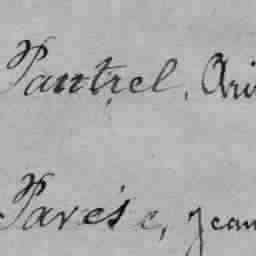 Pautrel, Ari
Parése, Jean